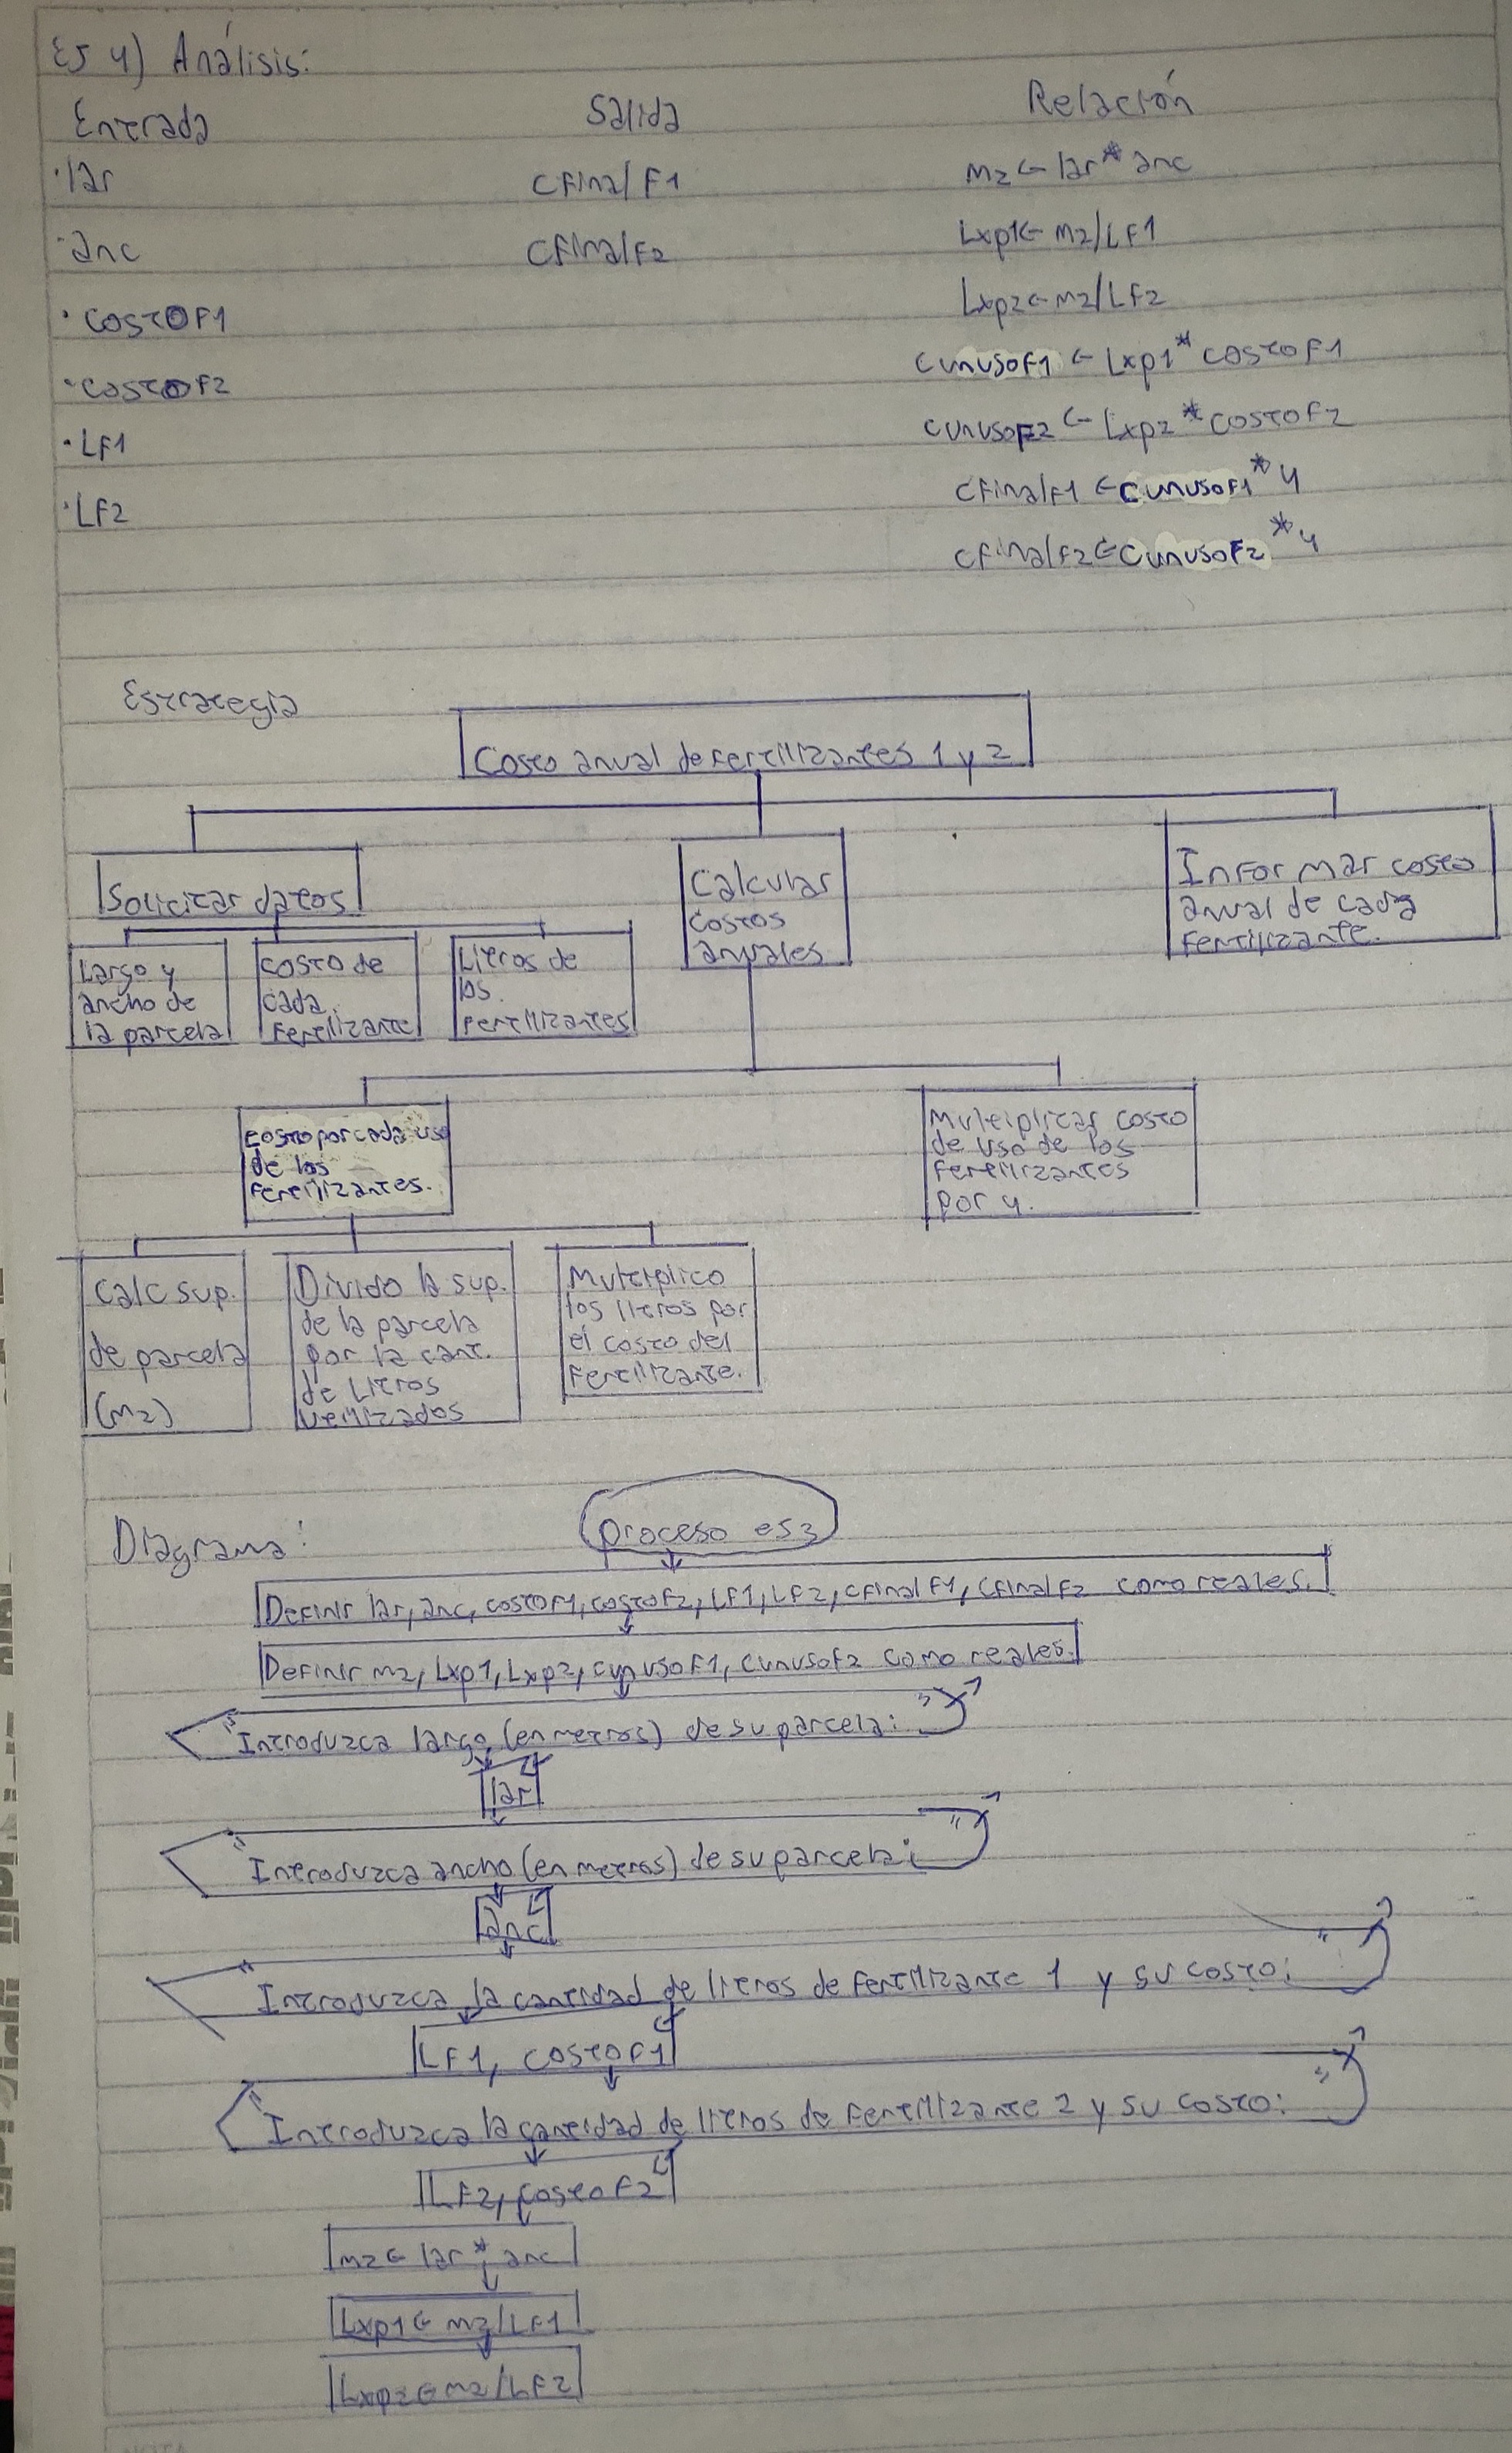 Ej 4) Análisis:
Entrada Salida Relación
·lar cfinalF1 m2 ← lar * anc
·anc cfinalF2 Lxp1 ← m2/LF1
·costoF1 Lxp2 ← m2/LF2
·costoF2 cunusoF1 ← Lxp1 * costoF1
·LF1 cunusoF2 ← Lxp2 * costoF2
·LF2 cfinalF1 ← cunusoF1 * 4
cfinalF2 ← cunusoF2 * 4
Estrategia
Costo anual de fertilizantes 1 y 2
Solicitar datos
Calcular
costos
anuales
Informar costo
anual de cada
fertilizante.
Largo y
ancho de
la parcela
costo de
cada
fertilizante
Litros de
los
fertilizantes
costo por cada uso
de los
fertilizantes.
Multiplicar costo
de uso de los
fertilizantes
por 4.
Calc sup.
de parcela
(m2)
Divido la sup.
de la parcela
por la cant.
de Litros
utilizados
Multiplico
los litros por
el costo del
fertilizante.
Diagrama:
proceso ej3
Definir lar, anc, costoF1, costoF2, LF1, LF2, cfinalF1, cfinalF2 como reales.
Definir m2, Lxp1, Lxp2, cunusoF1, cunusoF2 como reales.
"Introduzca largo (en metros) de su parcela: "
lar
"Introduzca ancho (en metros) de su parcela: "
anc
"Introduzca la cantidad de litros de fertilizante 1 y su costo: "
LF1, costoF1
"Introduzca la cantidad de litros de fertilizante 2 y su costo: "
LF2, costoF2
m2 ← lar * anc
Lxp1 ← m2/LF1
Lxp2 ← m2/LF2